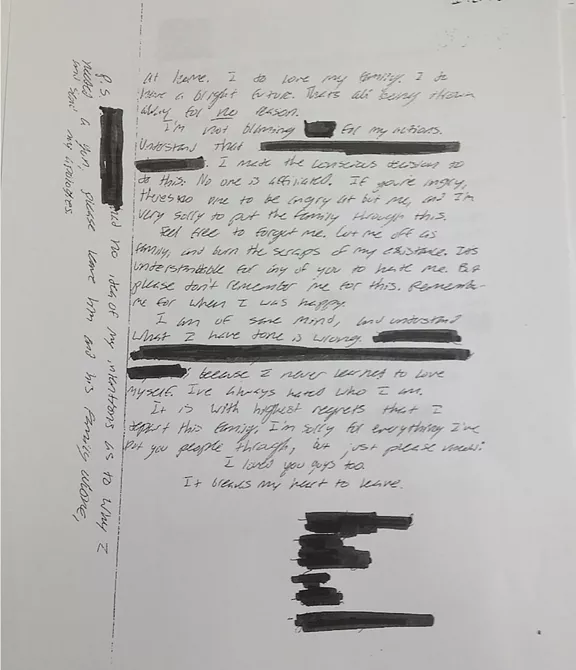 At home. I do love my family. I do
have a bright future. Thats all being thrown
away for no reason.
I'm not blaming for my actions.
Understand that
. I made the conscious decision to
do this. No one is affiliated. If you're angry,
theres no one to be angry at but me, and I'm
very sorry to put the family through this.
Feel free to forget me. Cut me off as
family, and burn the scraps of my existance. Its
understandable for any of you to hate me. But
please don't remember me for this. Remember
me for when I was happy.
I am of sane mind, and understand
what I have done is wrong.
, because I never learned to love
myself. I've always hated who I am.
It is with highest regrets that I
depart this family. I'm sorry for everything I've
put you people through, but just please
I loved you guys too.
It breaks my heart to leave.
P.S. had no idea of my intentions as to why I
needed a gun, please leave him and his family alone,
and send my apologies